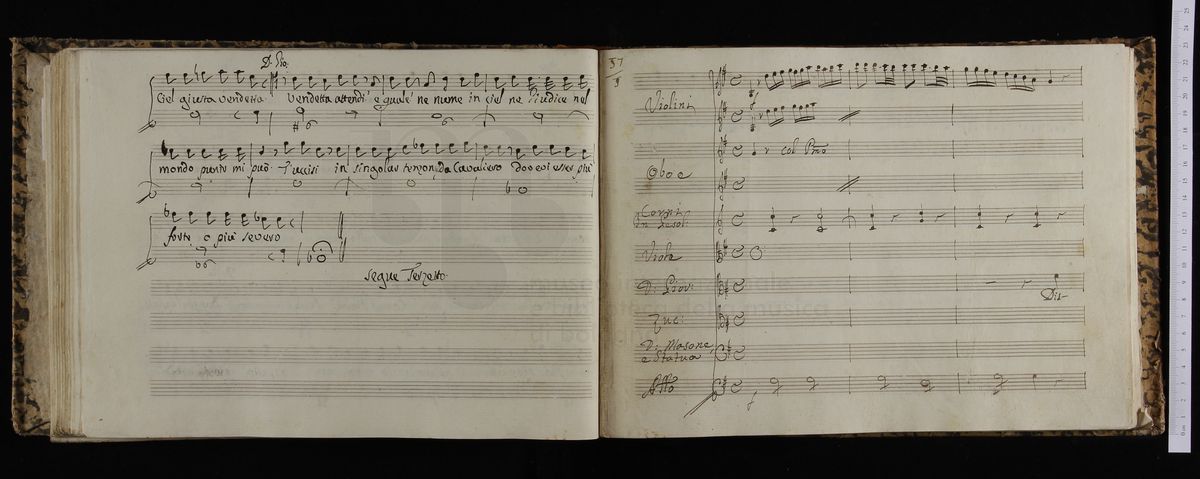 Ciel giusta vendetta Vendetta attendi e quale ne nume in ciel ne Giudice nel
mondo punir mi può
in singolar tenzon da Cavaliero
forte e più severo
Segue Terzetto
37
Violini
Col Pmo
Oboe
Corni
in Gesol:
Viola
D: Giov:
Dis
Zuc:
D: Masone
e Statua
Allo
f